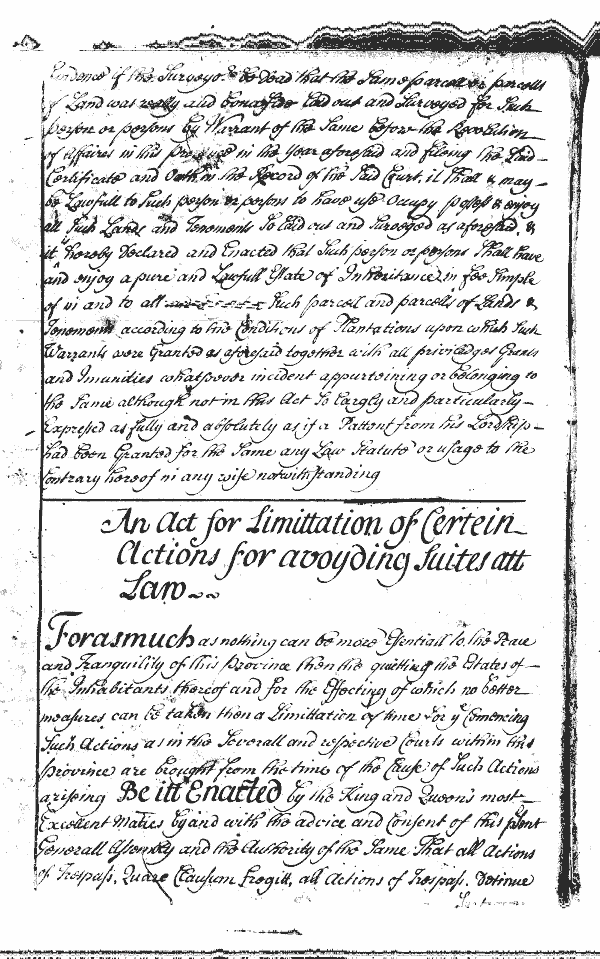 Evidence if the Surveyor be dead that the same parcell or parcells
of Land was really and bonafide laid out and Surveyed for Such
person or persons by Warrant of the Same before the Revolution
of Affaires in this province in the Year aforesaid and fileing the Said
Certificate and Oath in the Record of the Said Court, it shall & may
be Lawfull to Such person or persons to have use Occupy possess & enjoy
all Such Lands and Tenements So laid out and Surveyed as aforesaid, &
it hereby Declared and Enacted that Such person or persons Shall have
and enjoy a pure and Lawfull Estate of Inheritance in fee Simple
of in and to all Such parcell and parcells of Lands &
Tenements according to the Conditions of Plantations upon which Such
Warrants were Granted as aforesaid together with all priviledges Grants
and Imunities whatsoever incident appurteining or belonging to
the Same although not in this Act So largly and particularly
Expressed as fully and absolutely as if a Pattent from his Lordship
had been Granted for the Same any Law Statute or usage to the
Contrary hereof in any wise notwithstanding
An Act for Limittation of Certein
Actions for avoyding Suites att
Law
Forasmuch as nothing can be more Essentiall to the Peace
and Tranquility of this Province then the quieting the Estates of
the Inhabitants thereof and for the Effecting of which no better
measures can be taken then a Limittation of time for ye Comencing
Such Actions as in the Severall and respective Courts within this
Province are brought from the time of the Cause of Such Actions
arising Be itt Enacted by the King and Queen's most
Excellent Maties by and with the advice and Consent of this psent
Generall Assembly and the Authority of the Same That all Actions
of Trespass, Quare Clausum Fregitt, all Actions of Trespass, Detinue